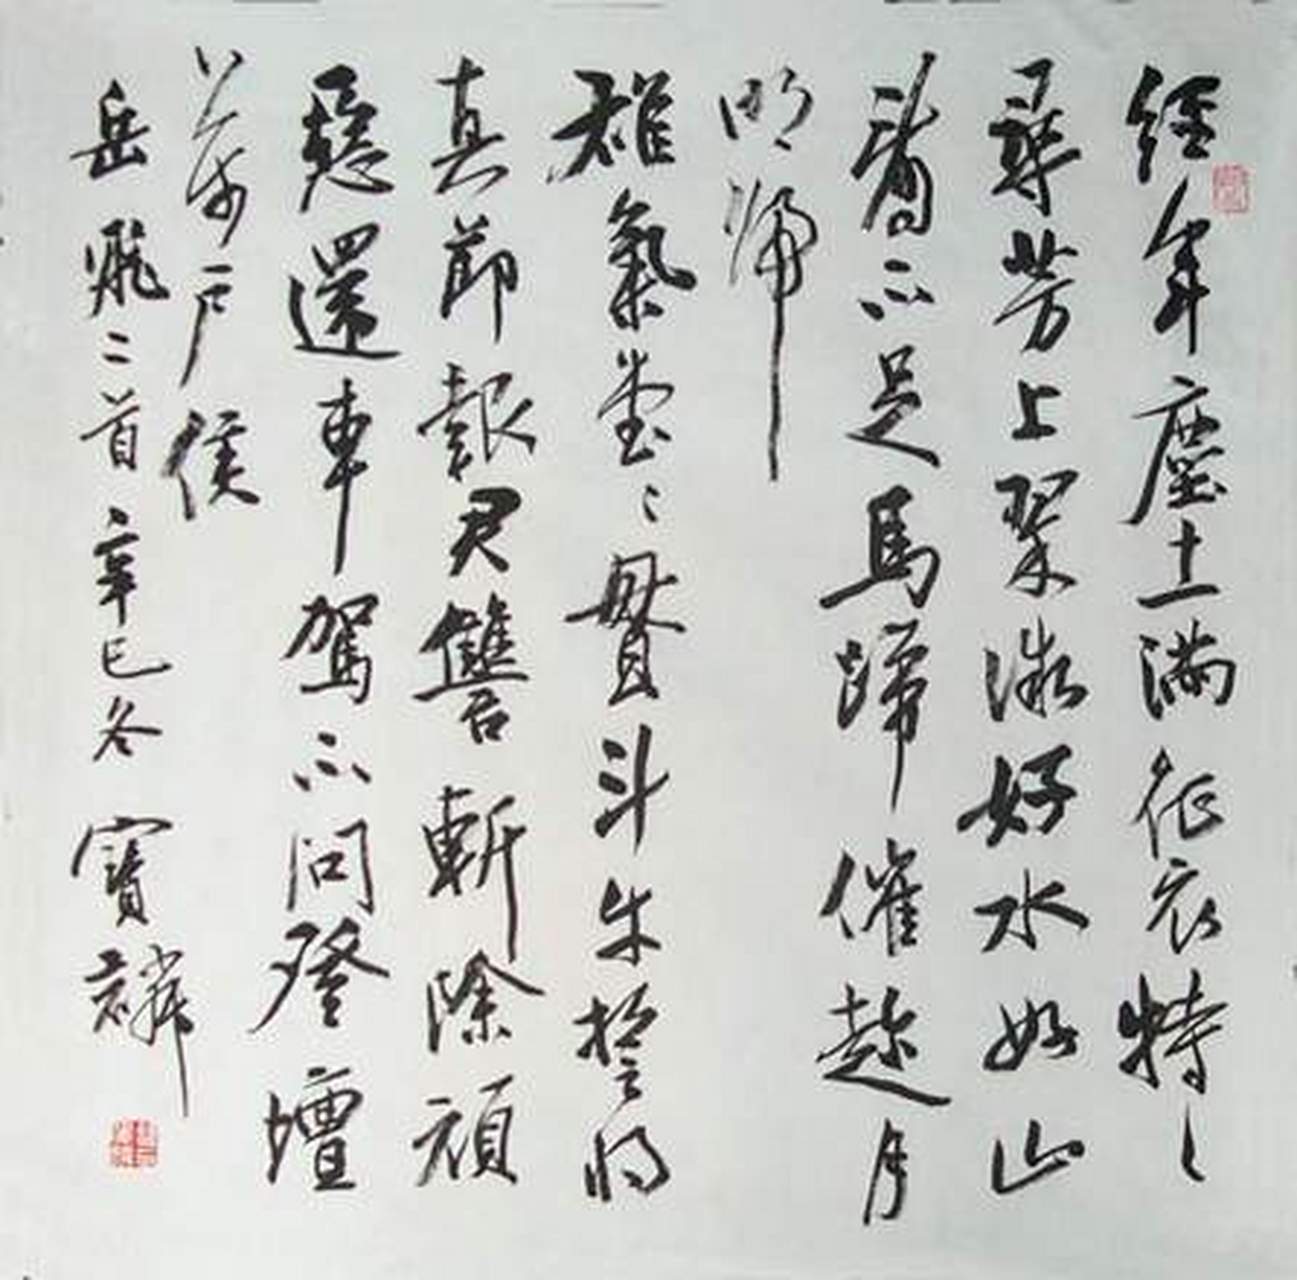 經年塵土满征衣特〻
尋芳上翠微好水好山
看不足馬蹄催趁月
明歸
雄氣堂〻貫斗牛誓將
真節報君讎斬除頑
惡還車駕不問登壇
萬戶侯
岳飛二首 辛巳冬 寶麟